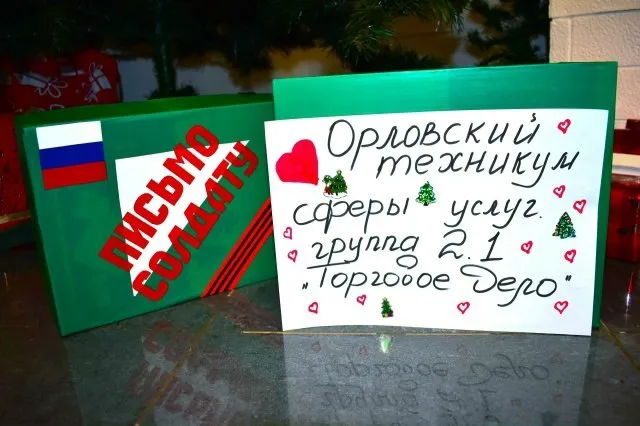 ПИСЬМО
СОЛДАТУ
Орловский
техникум
сферы услуг.
группа 2.1
"Торговое Дело"